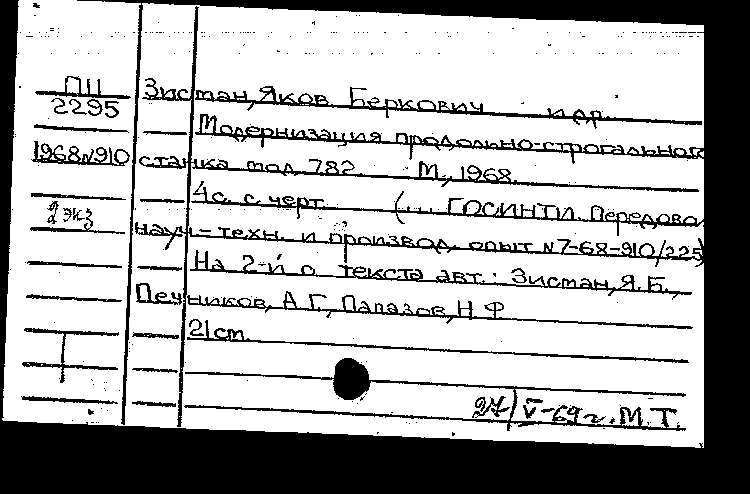 ПII
2295
1968№910
2 экз
Зистан, Яков Беркович и др.
Модернизация продольно-строгального
станка мод. 782. М., 1968.
4с. с черт. (... ГОСИНТИ. Передово
науч-техн. и производ. опыт №7-68-910/225)
На 2-й с. текста авт.: Зистан, Я.Б.,
Печников, А.Г., Папазов, Н.Ф
21 cm.
27/V-69 г. М.Т.